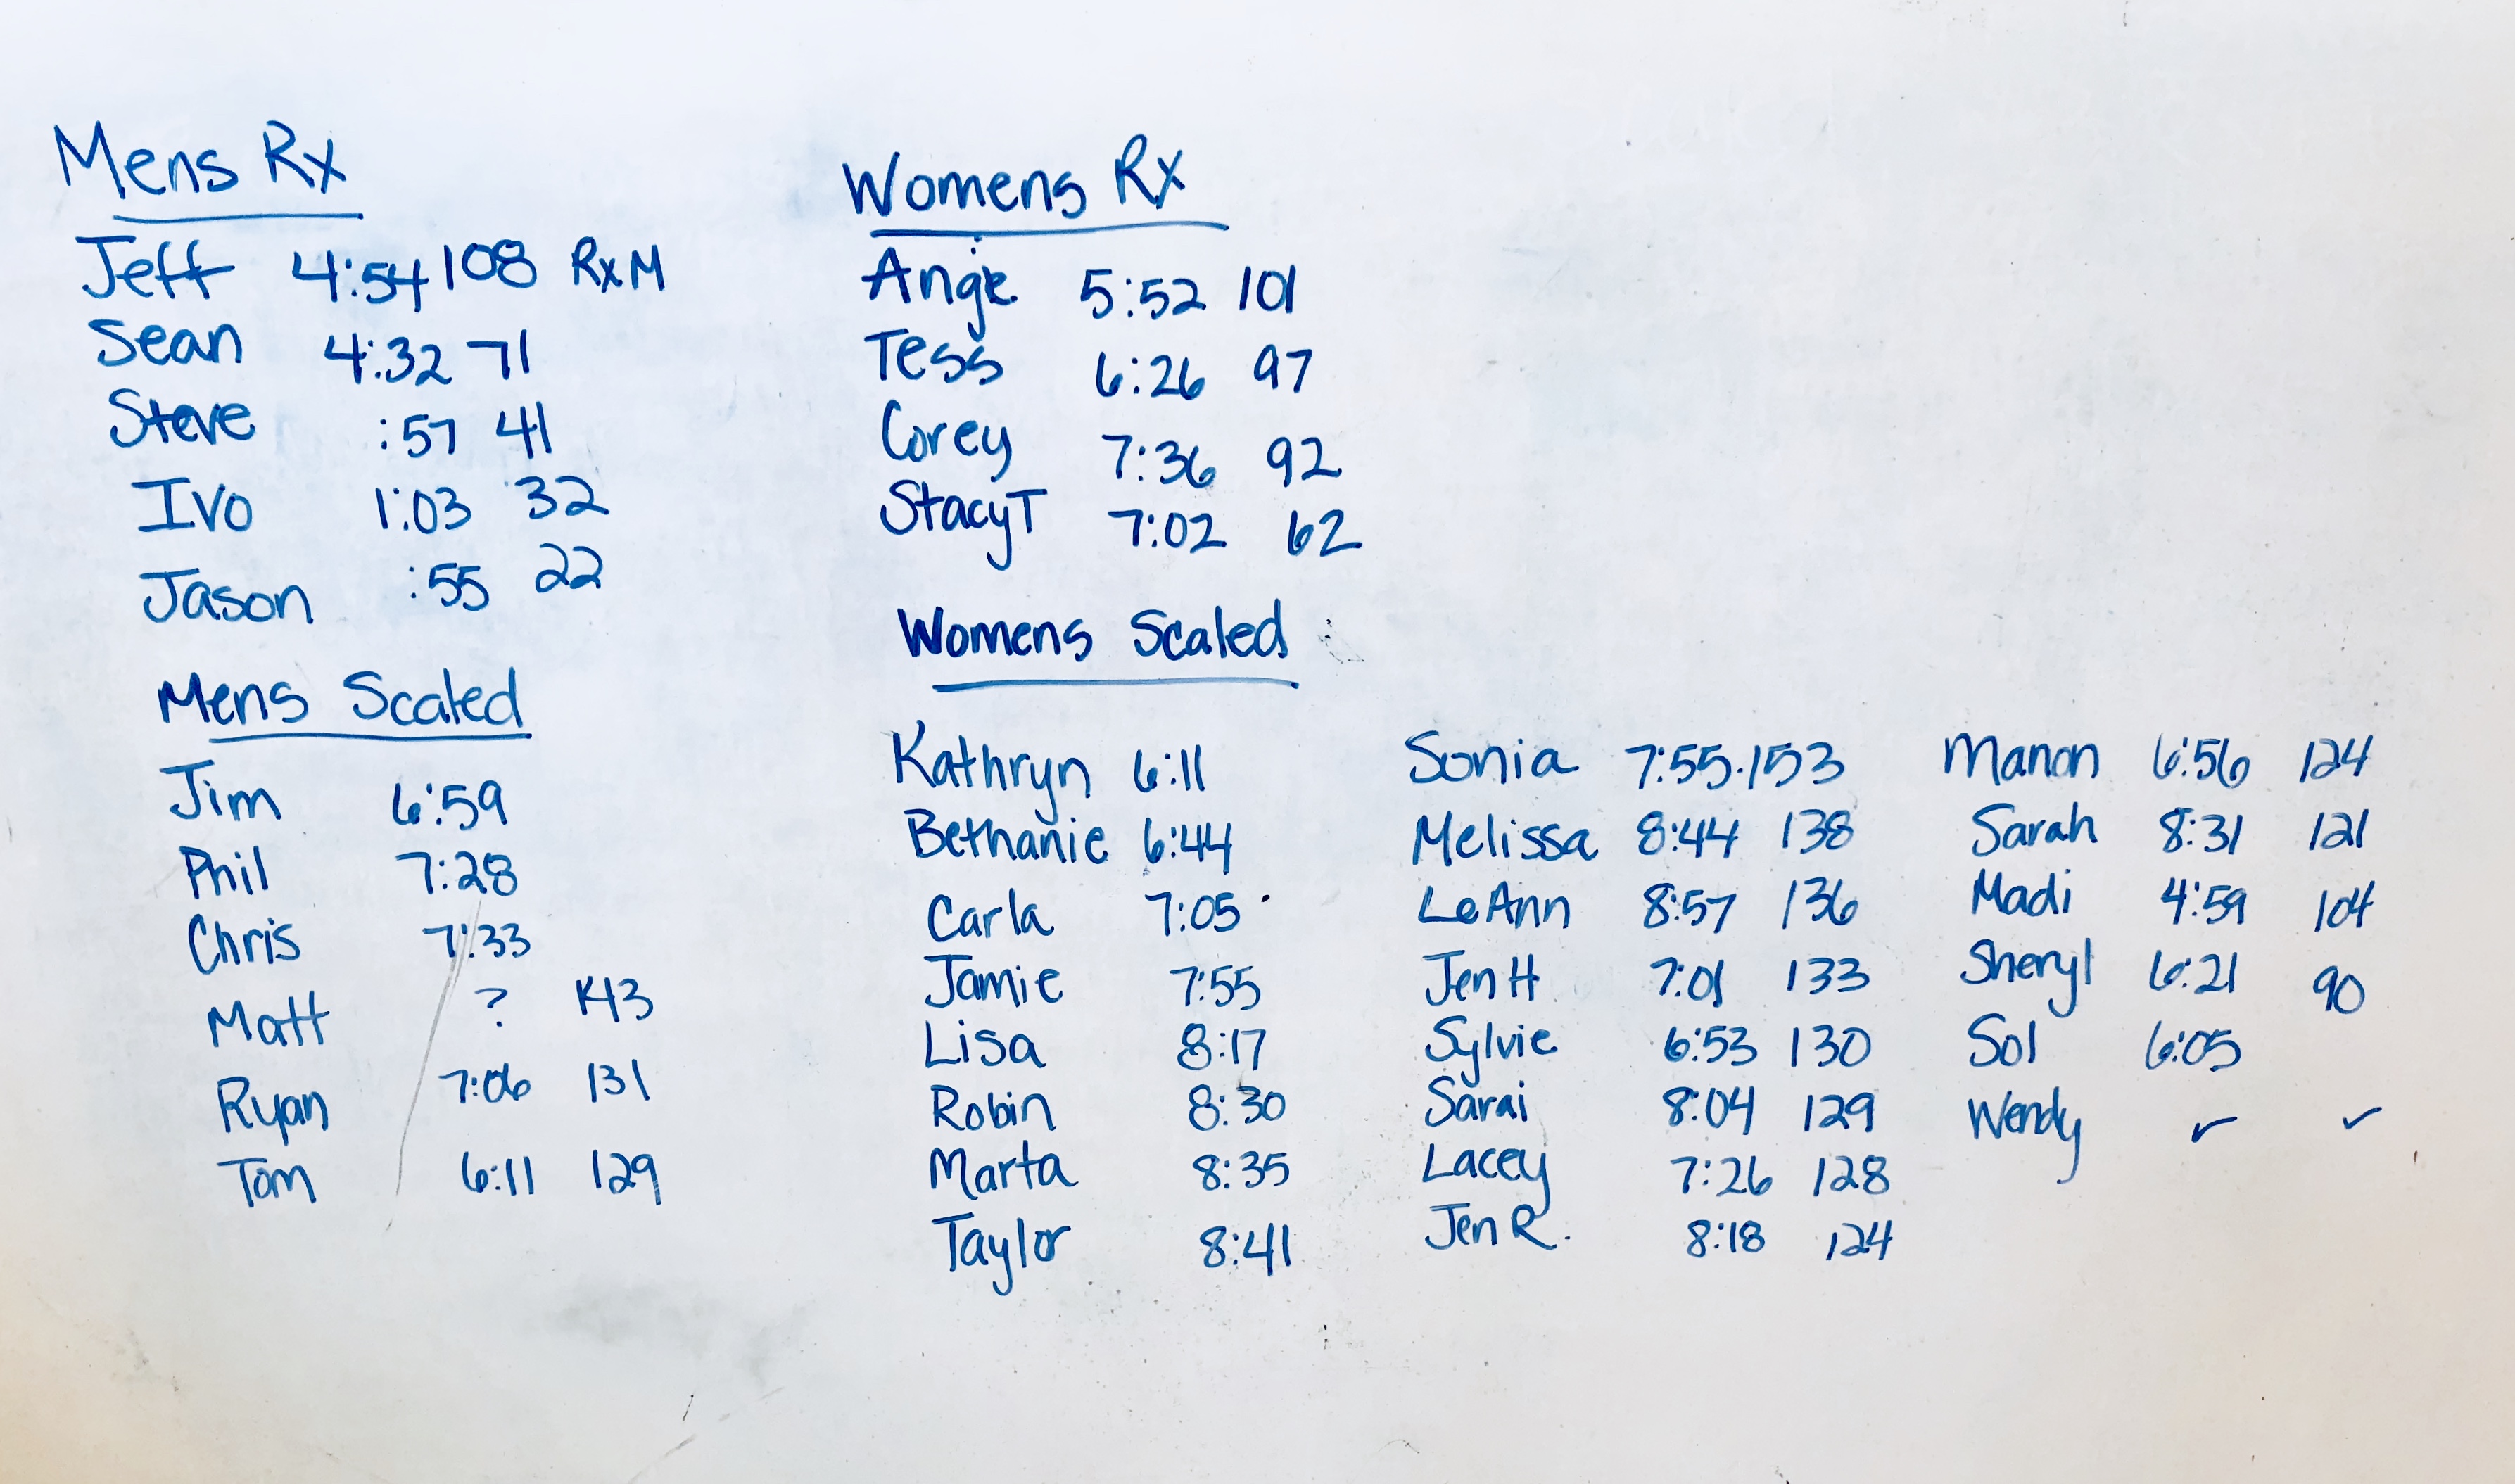 Mens Rx
Jeff 4:54 108 RxM
Sean 4:32 71
Steve :57 41
Ivo 1:03 32
Jason :55 22
Mens Scaled
Jim 6:59
Phil 7:28
Chris 7:33
Matt ? 143
Ryan 7:06 131
Tom 6:11 129
Womens Rx
Angie 5:52 101
Tess 6:26 97
Corey 7:36 92
StacyT 7:02 62
Womens Scaled
Kathryn 6:11
Bethanie 6:44
Carla 7:05
Jamie 7:55
Lisa 8:17
Robin 8:30
Marta 8:35
Taylor 8:41
Sonia 7:55 153
Melissa 8:44 138
LeAnn 8:57 136
Jen H 7:01 133
Sylvie 6:53 130
Sarai 8:04 129
Lacey 7:26 128
Jen R. 8:18 124
Manon 6:56 124
Sarah 8:31 121
Madi 4:59 104
Sheryl 6:21 90
Sol 6:05
Wendy ✓ ✓